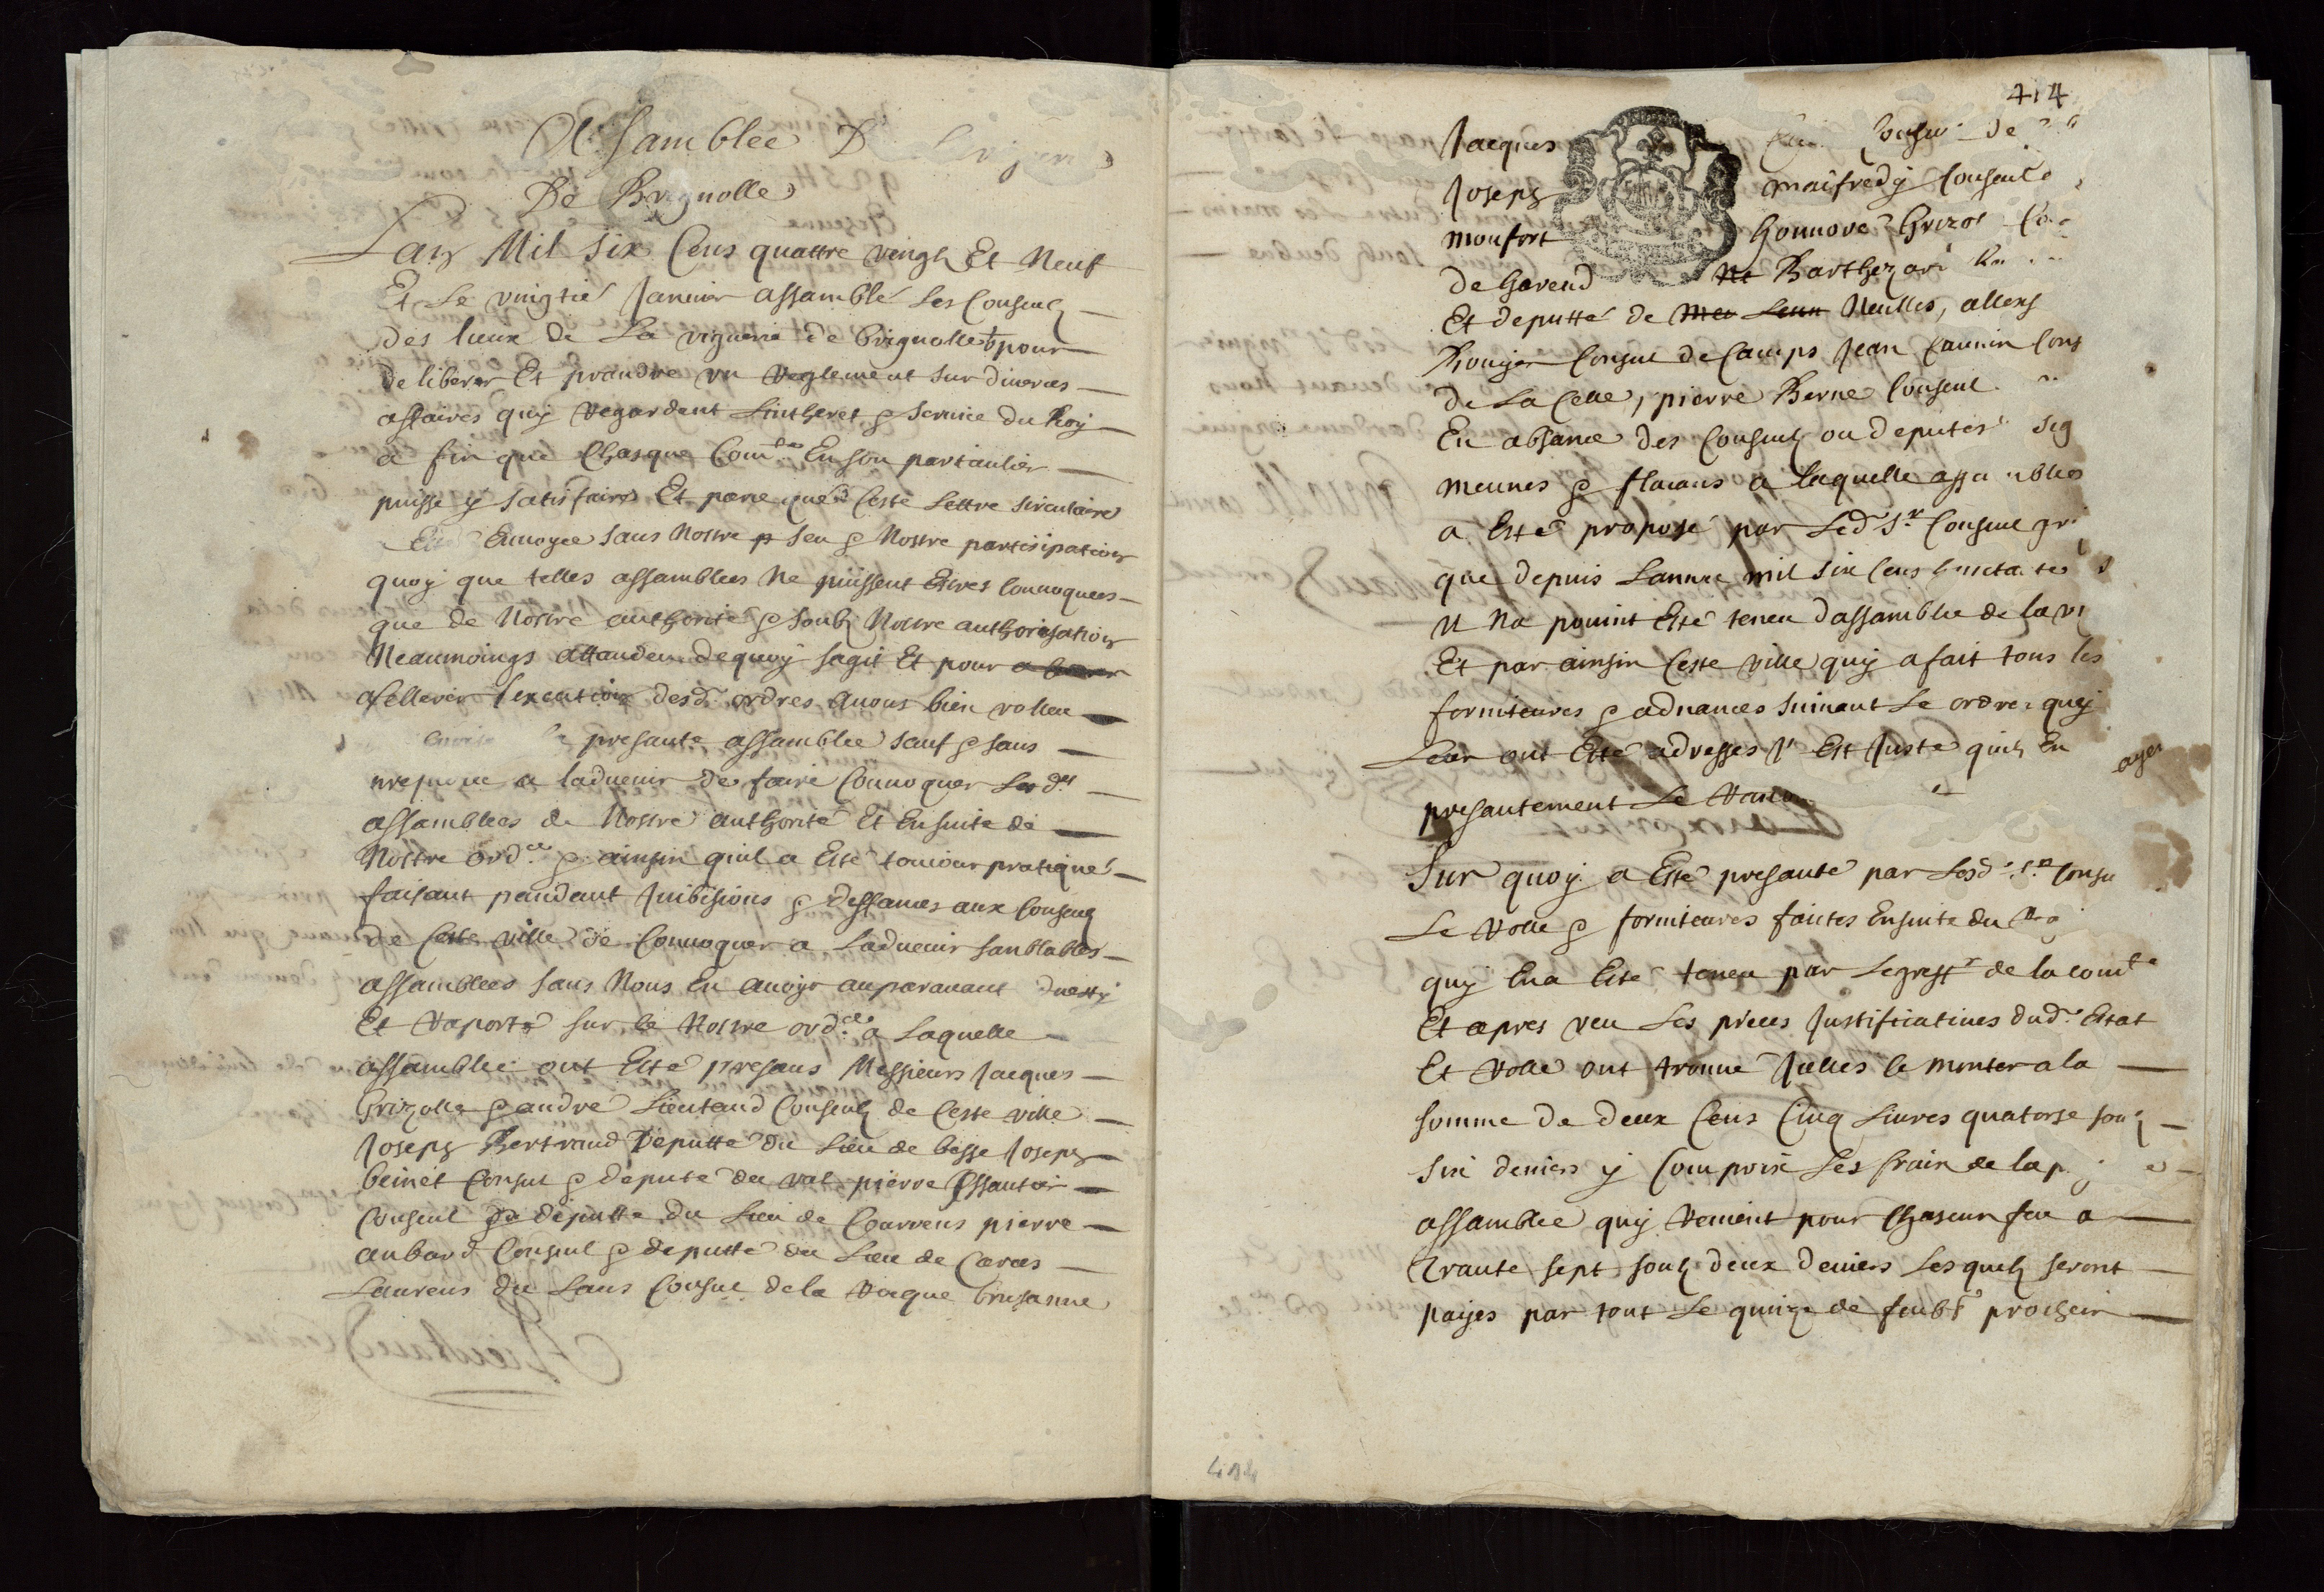 Assamblee D
De Brignolle
Lan Mil six Cens quattre vingt Et Neuf
Et Le vingtié Janvier assamblé Les Conseulz
des lieux de La viguerie de brignolle pour
deliberer Et prandre un reglement sur diverces
affaires quy regardent Lintheret & service du Roy
a fin que Chasque Comté En son particulier
puisse y satisfaire Et parce que Ceste Lettre sirculaire
Esté Envoyee sans Nostre seu & Nostre partisipation
quoy que telles assamblees Ne puissent Estres Convoquees
que de Nostre authorité & soubz Nostre authorisation
Neaumoings attandeu dequoy sagit Et pour
afellerer lexecution desd. ordres avons bien volleu
presante assamblee sauf & sans
prejudice a ladvenir de faire Convoquer Lesdes
assamblees de Nostre authorité Et Ensuite de
Nostre ordce & ainsin quil a Esté toujour pratiqué
faisant pandant Inibisions & deffances aux Conseulz
de Ceste ville de Convoquer a Ladvenir sanblables
assamblees sans Nous En avoyr auparavant
Et raporté sur Nostre ordce a Laquelle
assamblee ont Esté presans Messieurs Jacques
Grizolle & andre Lieutaud Conseulz de Ceste ville
Joseph Bertrand Deputté du Lieu de besse Joseph
beinet Consul & deputé du val pierre
Conseul & deputté du Lieu de Correns pierre
aubard Conseul & deputté du Lieu de Carces
Laurens du Laus Consul de la Roque brusanne
414
Jacques Consul de
Joseph maifredy Conseul
monfort honnoré Grizol
de Gareud Barthezard
Et deputté de Neulles, allexs
Rougier Consul de Camps Jean Caunin Cons
De La Celle, pierre Berne Conseul
En absance des Conseulz ou deputés sig
meunes & flacans a laquelle assamblee
a Esté proposé par Led. Sr. Consul gri
que depuis Lannee mil six Cens
Il Na pouint Esté teneu dassamblee de la vi
Et par ainsin Ceste ville quy a fait tous les
forniteures & advances suivant Le ordres quy
Leur ont Esté adresses Il Est Juste quilz En
ayen
presantement Le
Sur quoy a Esté presanté par Lesd. Srs Consu
Le rolle & forniteures faittes Ensuite du
quy En a Esté teneu par Legreffr de la comté
Et apres veu Les pieces Justificatives dud. Estat
Et rolle ont trouvé Jcelles se monter a la
somme de deux Cens Cinq Livres quatorse soulz
six deniers y Compoixé Les frain de la p
assamblee quy vienent pour Chascun feu a
Trante sept soulz deux deniers Lesquelz seront
payes par tout Le quinze de feubr prochein
414